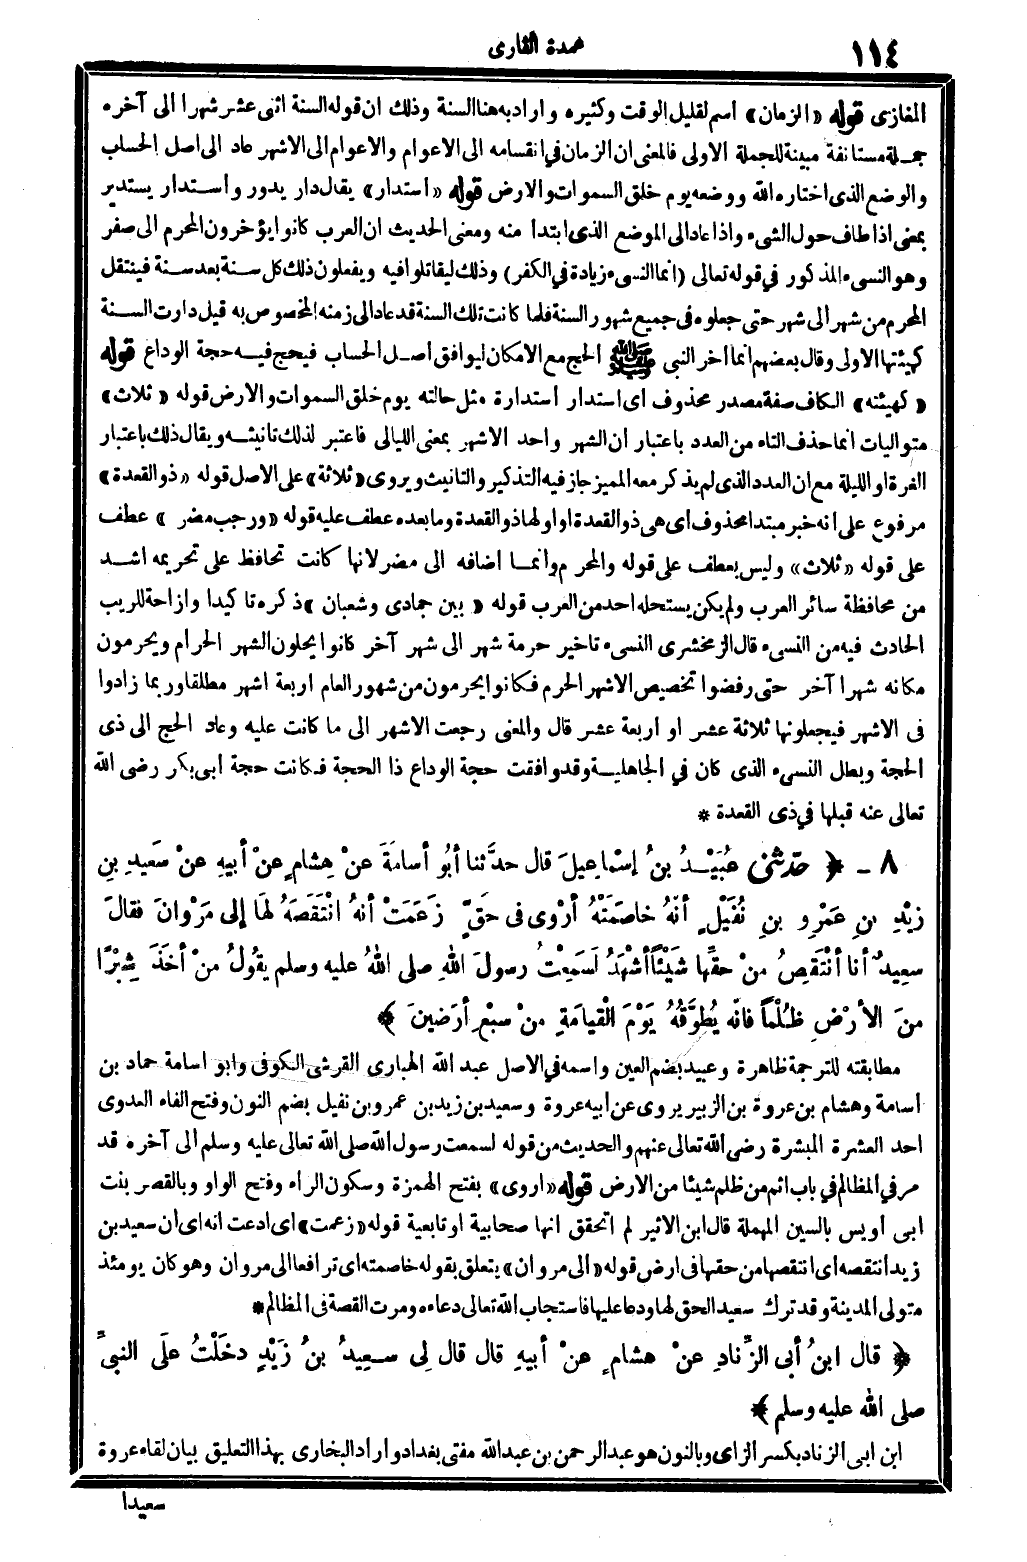 ١١٤
عمدة القارى
المغازى قوله «الزمان» اسم لقليل الوقت وكثيره واراد به هنا السنة وذلك ان قوله السنة اثنى عشر شهرا الى آخره
جملة مستانفة مبينة للجملة الاولى فالمعنى ان الزمان في انقسامه الى الاعوام والاعوام الى الاشهر عاد الى اصل الحساب
والوضع الذى اختاره الله ووضعه يوم خلق السموات والارض قوله «استدار» يقال دار يدور واستدار يستدير
بمعنى اذا طاف حول الشىء واذا عاد الى الموضع الذى ابتدأ منه ومعنى الحديث ان العرب كانوا يؤخرون المحرم الى صفر
وهو النسىء المذكور في قوله تعالى (انما النسىء زيادة في الكفر) وذلك ليقاتلوا فيه ويفعلون ذلك كل سنة بعد سنة فينتقل
المحرم من شهر الى شهر حتى جعلوه فى جميع شهور السنة فلما كانت تلك السنة قد عاد الى زمنه المخصوص به قيل دارت السنة
كهيئتها الاولى وقال بعضهم انما اخر النبى ﷺ الحج مع الامكان ليوافق اصل الحساب فيحج فيه حجة الوداع قوله
«كهيئته» الكاف صفة مصدر محذوف اى استدار استدارة مثل حالته يوم خلق السموات والارض قوله «ثلاث»
متواليات انما حذف التاء من العدد باعتبار ان الشهر واحد الاشهر بمعنى الليالى فاعتبر لذلك تانيثه ويقال ذلك باعتبار
الغرة او الليلة مع ان العدد الذى لم يذكر معه المميز جاز فيه التذكير والتانيث ويروى «ثلاثة» على الاصل قوله «ذو القعدة»
مرفوع على انه خبر مبتدا محذوف اى هى ذو القعدة او اولها ذو القعدة وما بعده عطف عليه قوله «ورجب مضر» عطف
على قوله «ثلاث» وليس بعطف على قوله والمحرم وانما اضافه الى مضر لانها كانت تحافظ على تحريمه اشد
من محافظة سائر العرب ولم يكن يستحله احد من العرب قوله «بين جمادى وشعبان» ذكره تاكيدا وازاحة للريب
الحادث فيه من النسىء قال الزمخشرى النسىء تاخير حرمة شهر الى شهر آخر كانوا يحلون الشهر الحرام ويحرمون
مكانه شهرا آخر حتى رفضوا تخصيص الاشهر الحرم فكانوا يحرمون من شهور العام اربعة اشهر مطلقا وربما زادوا
فى الاشهر فيجعلونها ثلاثة عشر او اربعة عشر قال والمعنى رجعت الاشهر الى ما كانت عليه وعاد الحج الى ذى
الحجة وبطل النسىء الذى كان في الجاهلية وقد وافقت حجة الوداع ذا الحجة فكانت حجة ابى بكر رضى الله
تعالى عنه قبلها في ذى القعدة *
٨ - ﴿ حدّثنى عُبَيْدُ بنُ إسْماعِيلَ قال حدَّثنا أبُو أسامَةَ عنْ هِشامٍ عنْ أبِيهِ عنْ سَعِيدِ بنِ
زيْدِ بنِ عَمْرِو بنِ نُفَيْلٍ أنَّهُ خاصَمَتْهُ أرْوى فى حَقٍّ زعَمَتْ أنهُ انْتَقَصَهُ لهَا إلى مَرْوانَ فقالَ
سعِيدٌ أنا أنْتَقِصُ منْ حقِّها شَيْئًا أشْهَدُ لَسَمِعْتُ رسولَ اللهِ صلى اللهُ عليه وسلم يقُولُ منْ أخَذَ شِبْرًا
منَ الأرْضِ ظُلْماً فانّه يُطَوَّقُهُ يَوْمَ الْقيامَةِ منْ سبْعِ أرَضِينَ ﴾
مطابقته للترجمة ظاهرة وعبيد بضم العين واسمه في الاصل عبد الله الهبارى القرشى الكوفى وابو اسامة حماد بن
أسامة وهشام بن عروة بن الزبير يروى عن أبيه عروة وسعيد بن زيد بن عمرو بن نفيل بضم النون وفتح الفاء العدوى
احد العشرة المبشرة رضى الله تعالى عنهم والحديث من قوله لسمعت رسول الله صلى الله تعالى عليه وسلم الى آخره قد
مر في المظالم في باب اثم من ظلم شيئا من الارض قوله «اروى» بفتح الهمزة وسكون الراء وفتح الواو وبالقصر بنت
ابى أويس بالسين المهملة قال ابن الاثير لم اتحقق انها صحابية او تابعية قوله «زعمت» اى ادعت انه اى ان سعيد بن
زيد انتقصه اى انتقصها من حقها فى ارض قوله «الى مروان» يتعلق بقوله خاصمته اى ترافعا الى مروان وهو كان يومئذ
متولى المدينة وقد ترك سعيد الحق لها ودعا عليها فاستجاب الله تعالى دعاءه ومرت القصة فى المظالم *
﴿ قال ابنُ أبى الزِّنادِ عنْ هشامٍ عنْ أبيهِ قال قال لِى سعِيدُ بنُ زَيْدٍ دخَلْتُ علَى النبىِّ
صلى الله عليه وسلم ﴾
ابن ابى الزناد بكسر الزاى وبالنون هو عبد الرحمن بن عبد الله مفتى بغداد واراد البخارى بهذا التعليق بيان لقاء عروة
سعيدا